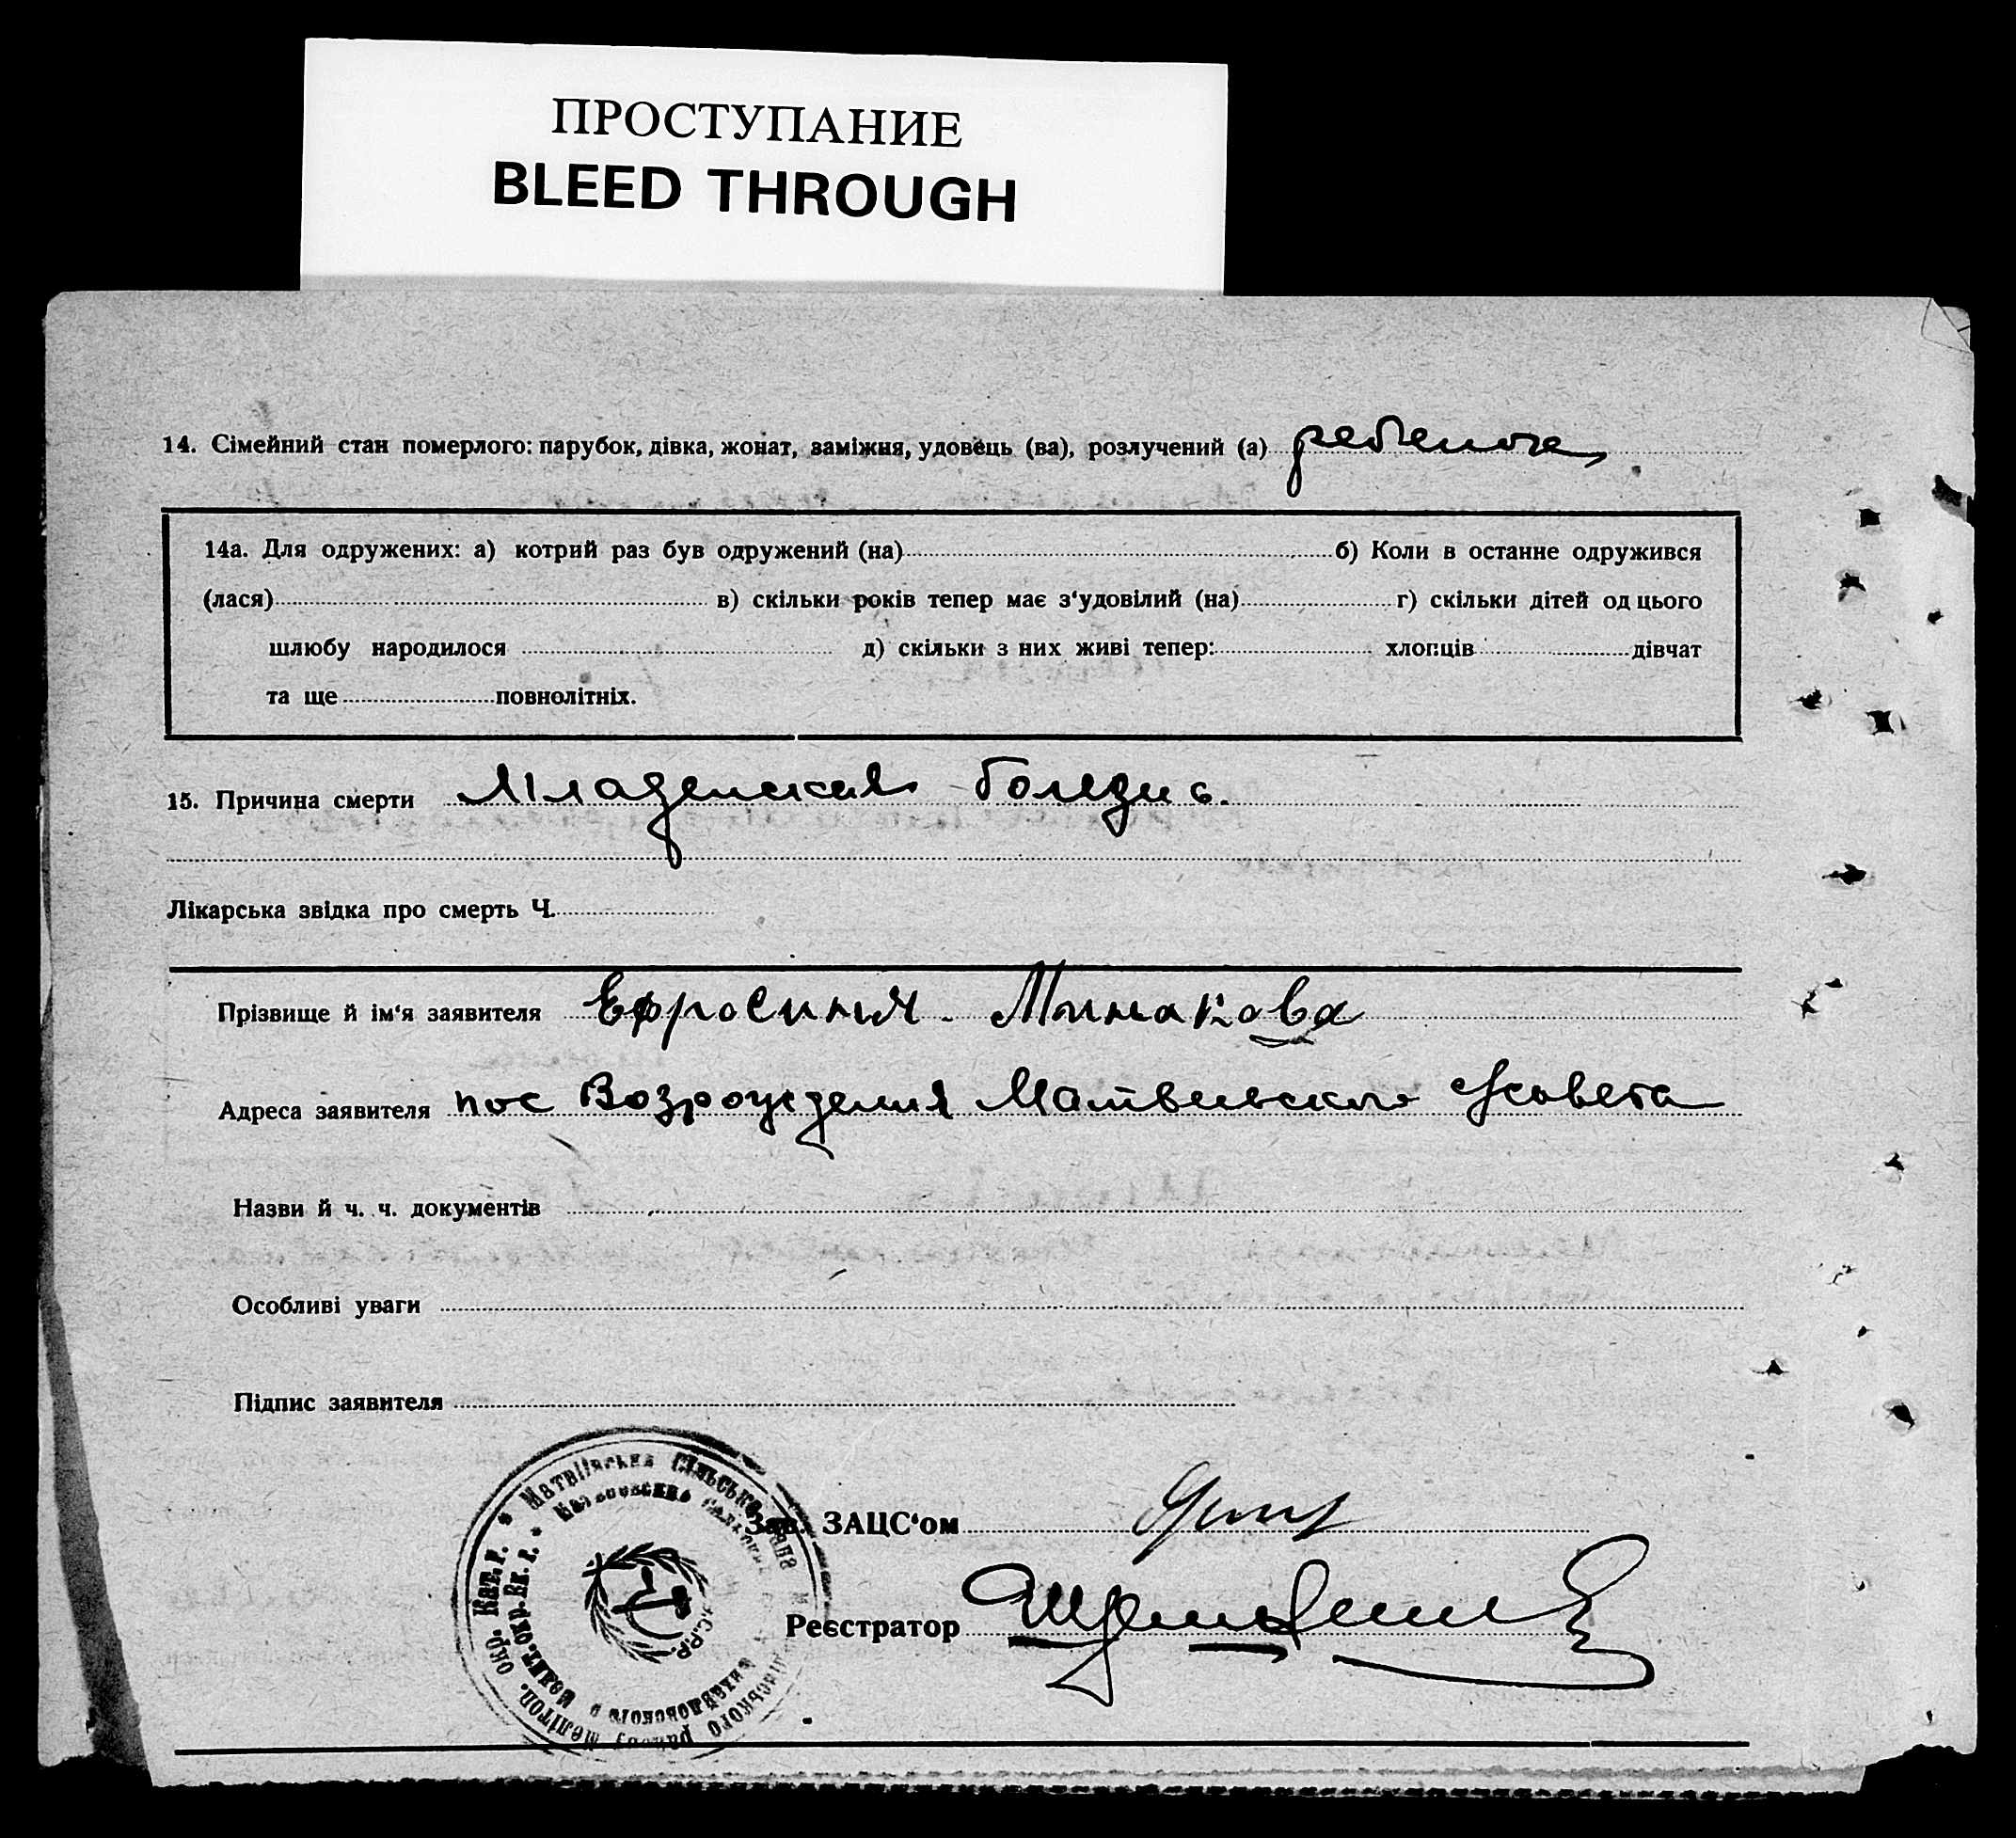 ПРОСТУПАНИЕ
BLEED THROUGH
14. Сімейний стан померлого: парубок, дівка, жонат, заміжня, удовець (ва), розлучений (а) ребенок
14а. Для одружених: а) котрий раз був одружений (на) б) Коли в останнє одружився
(лася) в) скільки років тепер має з'удовілий (на) г) скільки дітей од цього
шлюбу народилося д) скільки з них живі тепер: хлопців дівчат
та ще повнолітніх.
15. Причина смерти Младенская болезнь.
Лікарська звідка про смерть Ч.
Прізвище й ім'я заявителя Ефросиния Минакова
Адреса заявителя пос Возрождения Матвеевского с/совета
Назви й ч. ч. документів
Особливі уваги
Підпис заявителя
Матвіївська сільська рада
окр. Кат. г.
Мелітоп.
Зав. ЗАЦС'ом
Реєстратор